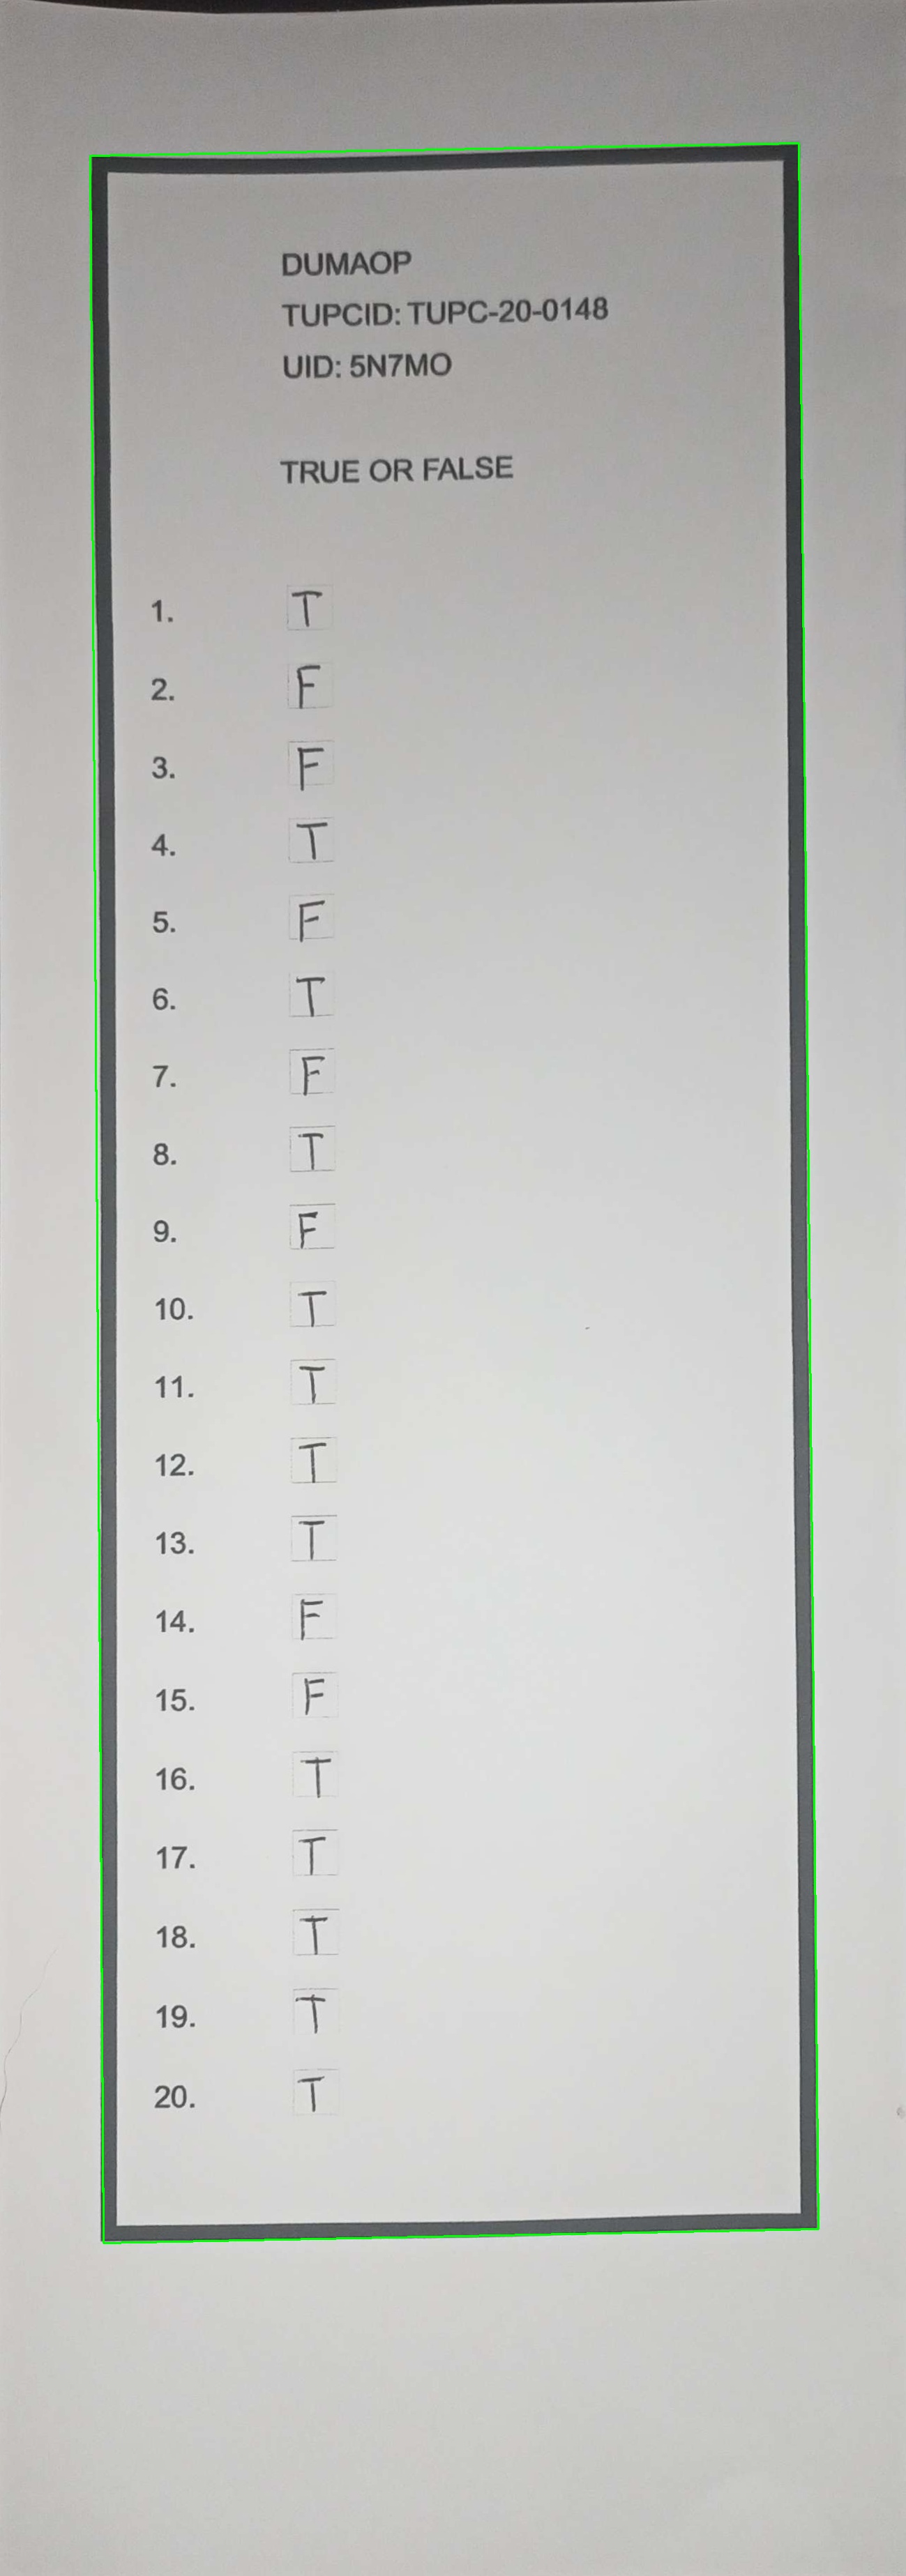 DUMAOP
TUPCID: TUPC-20-0148
UID: 5N7MO
TRUE OR FALSE
1. T
2. F
3. F
4. T
5. F
6. T
7. F
8. T
9. F
10. T
11. T
12. T
13. T
14. F
15. F
16. T
17. T
18. T
19. T
20. T